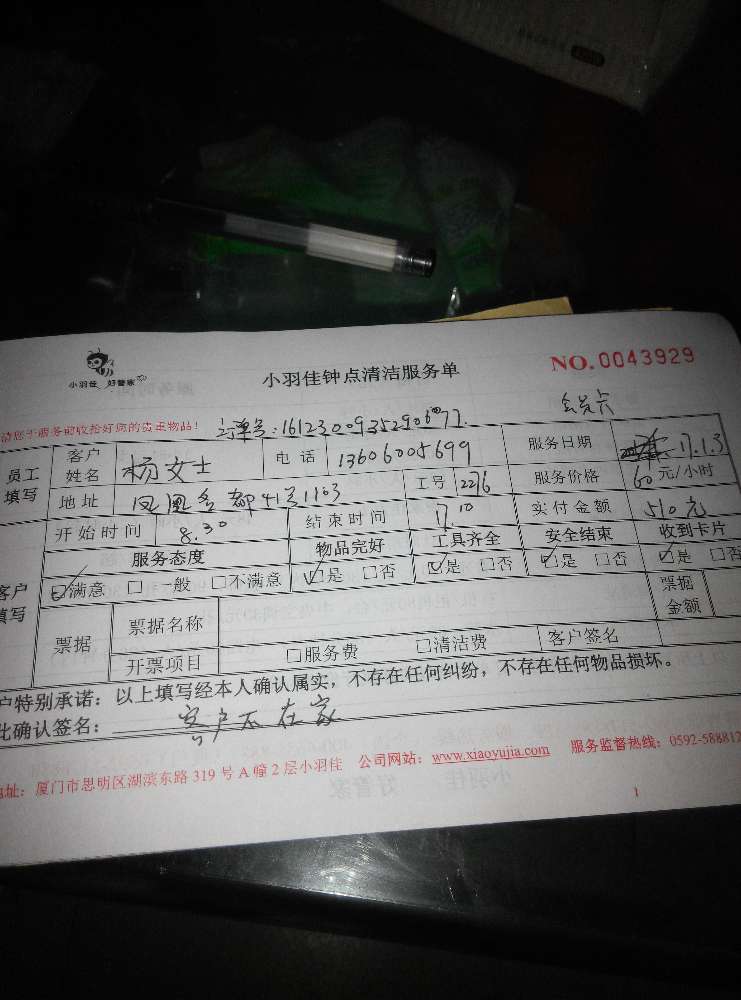 小羽佳 好管家
小羽佳钟点清洁服务单
NO.0043929
请您于服务前收拾好您的贵重物品!
会员卡
员工填写 客户姓名 杨女士 电话 13606005699 服务日期 17.1.3
地址 凤凰名都41号1103 工号 2276 服务价格 60元/小时
开始时间 8.30 结束时间 17.10 实付金额 510元
客户填写 服务态度 物品完好 工具齐全 安全结束 收到卡片
☑满意 □一般 □不满意 ☑是 □否 ☑是 □否 ☑是 □否 ☑是 □否
票据 票据名称 票据金额
开票项目 □服务费 □清洁费 客户签名
户特别承诺:以上填写经本人确认属实,不存在任何纠纷,不存在任何物品损坏。
此确认签名: 客户不在家
地址:厦门市思明区湖滨东路319号A幢2层小羽佳 公司网站:www.xiaoyujia.com 服务监督热线:0592-588812
1